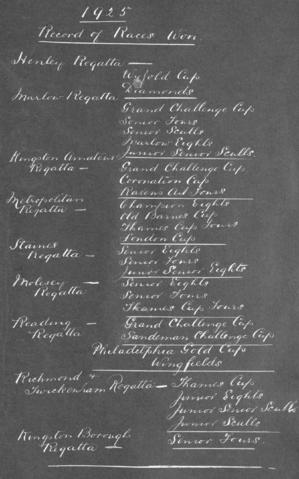 1925
Record of Races Won.
Henley Regatta —
Wyfold Cup
Diamonds
Marlow Regatta
Grand Challenge Cup
Senior Fours
Senior Sculls
Marlow Eights
Junior Senior Sculls.
Kingston Amateur
Regatta —
Grand Challenge Cup
Coronation Cup
Fours
Metropolitan
Regatta —
Champion Eights
Old Barnes Cup
Thames Cup Fours
London Cup
Staines
Regatta —
Senior Eights
Senior Fours
Junr Senior Eights
Molesey —
Regatta
Senior Eights
Senior Fours
Thames Cup Fours
Reading —
Regatta
Grand Challenge Cup
Sandeman Challenge Cup
Philadelphia Gold Cup
Wingfields
Richmond &
Twickenham Regatta —
Thames Cup
Junior Eights
Junior Senior Sculls
Junior Sculls
Kingston Borough
Regatta —
Senior Fours.